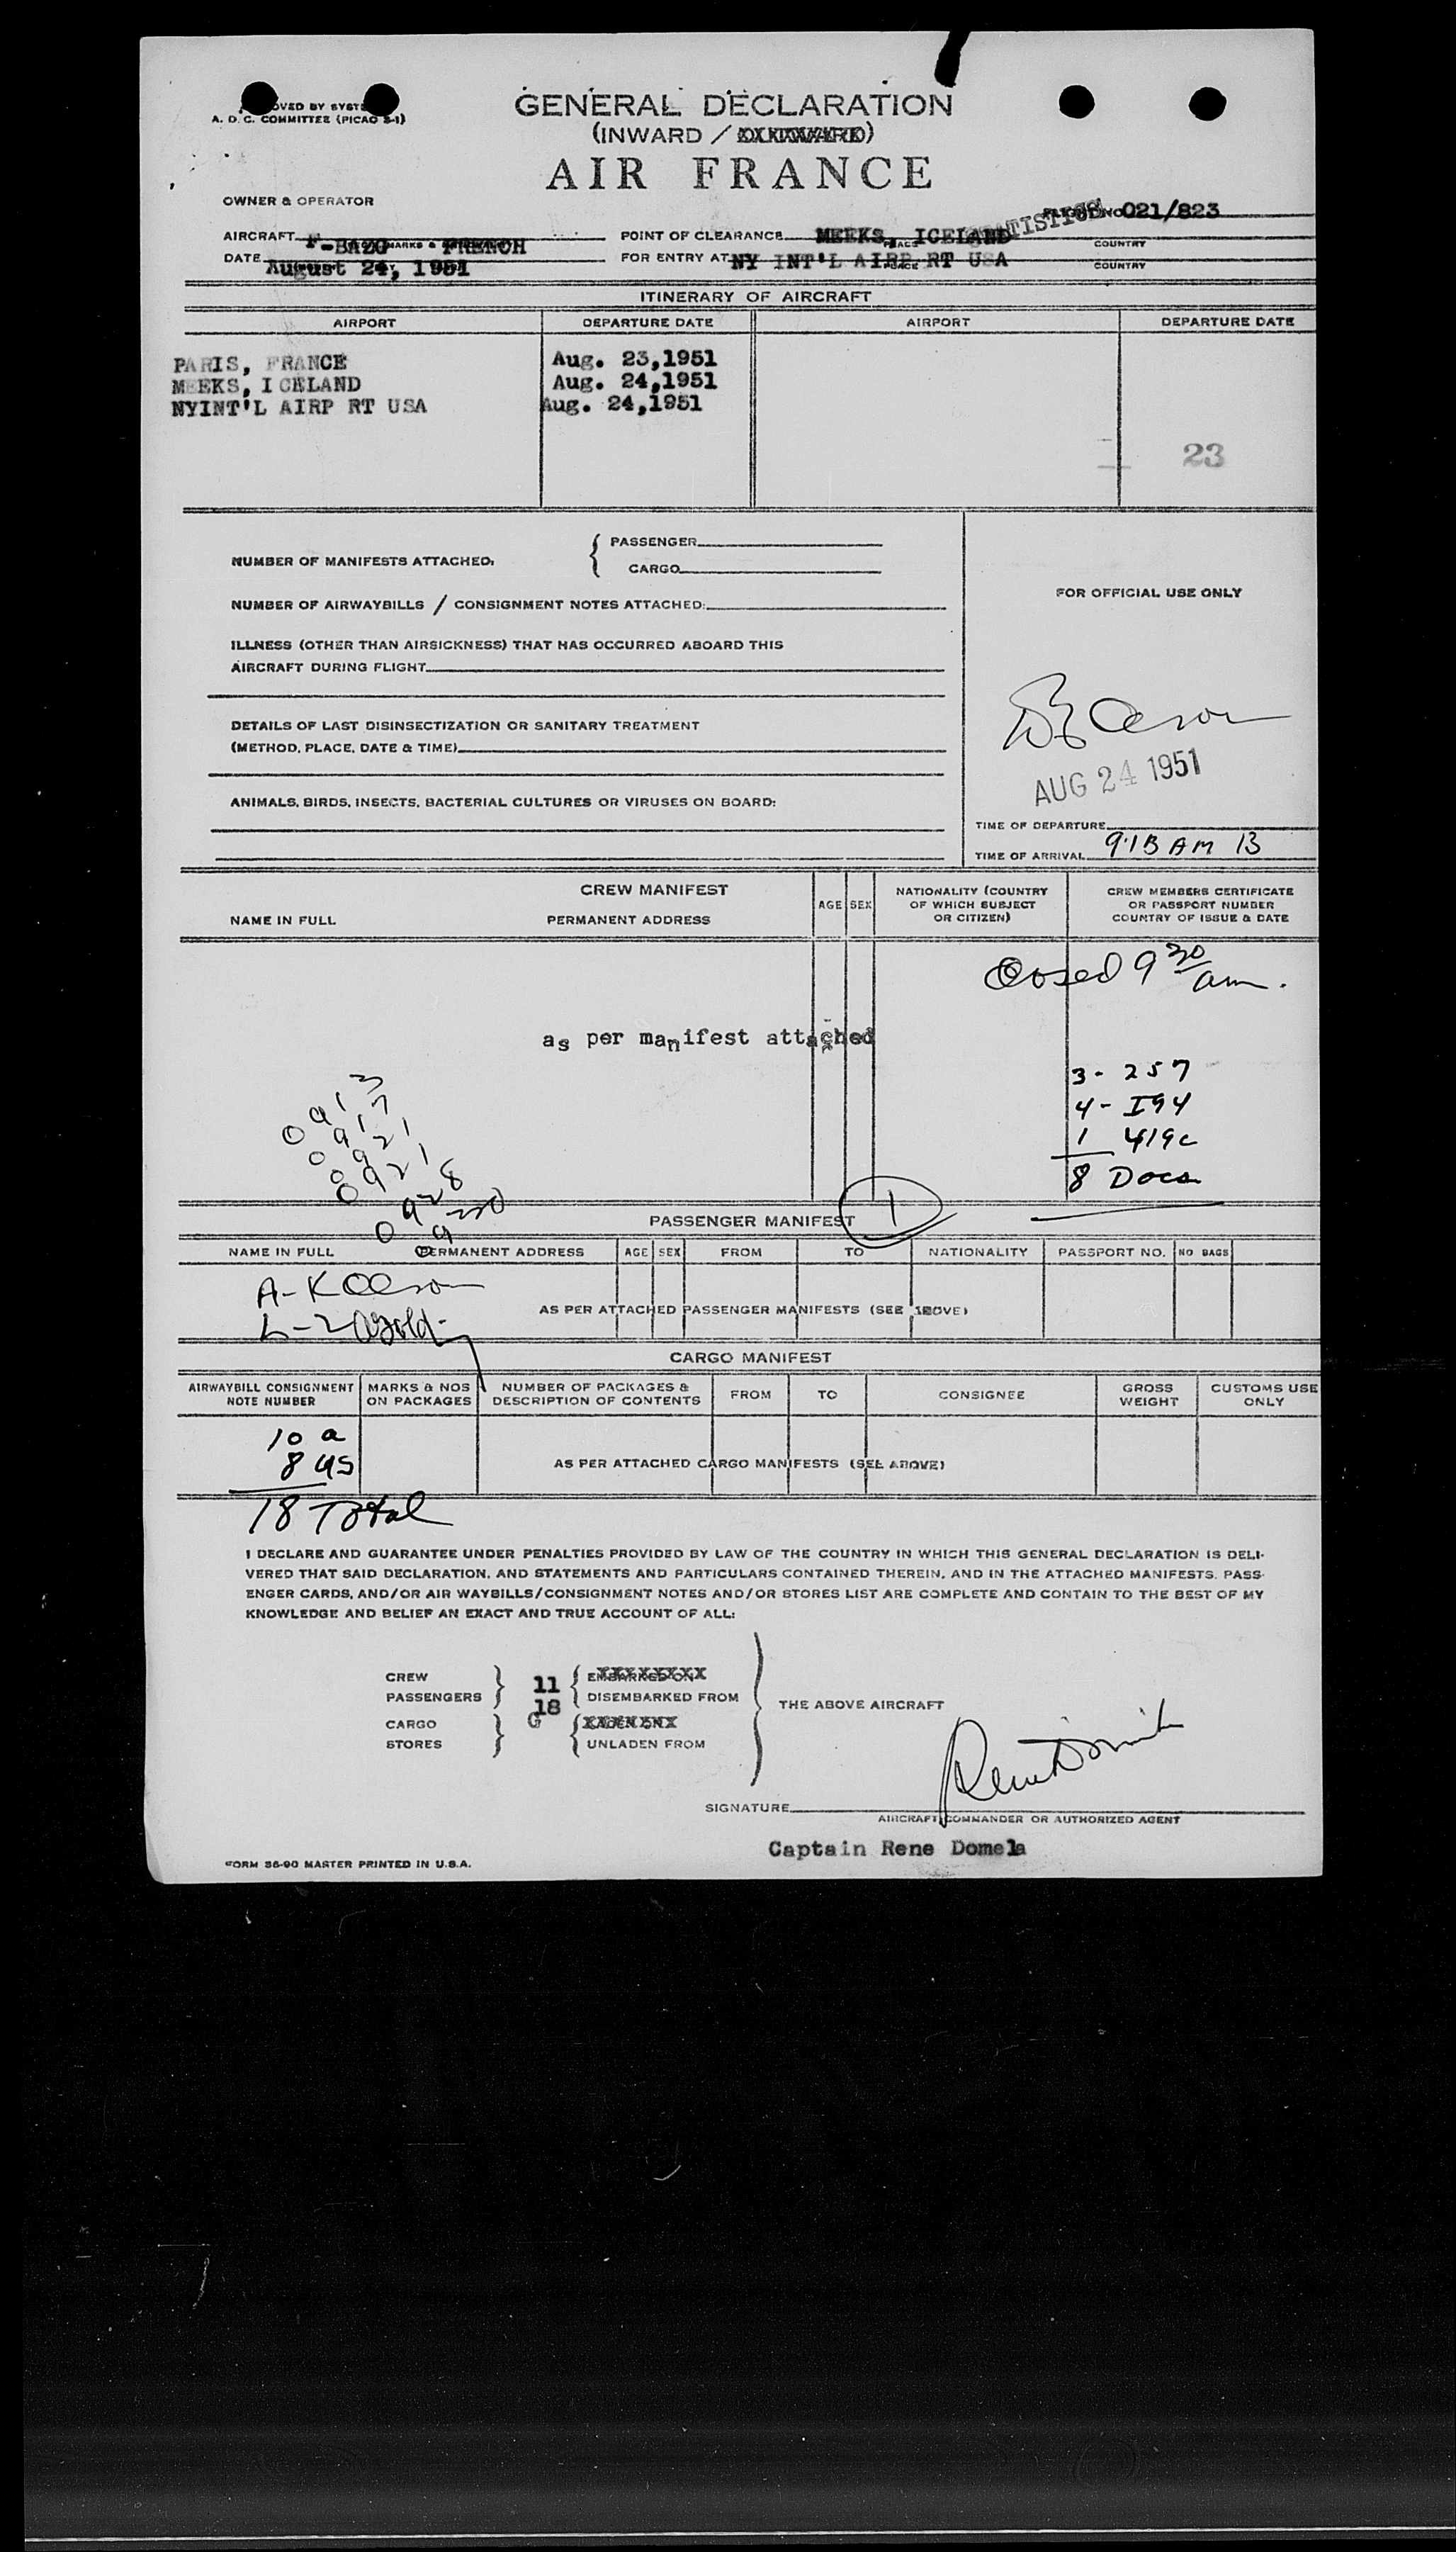 OVED BY SYST
A. D. C. COMMITTEE (PICAO S-1)
GENERAL DECLARATION
(INWARD / OUTWARD)
AIR FRANCE
OWNER & OPERATOR
STATISTICS
021/823
AIRCRAFT F-BAZO MARKS & FRENCH
POINT OF CLEARANCE MEEKS, ICELAND
PLACE
COUNTRY
DATE August 24, 1951
FOR ENTRY AT NY INT'L AIRP RT USA
PLACE
COUNTRY
ITINERARY OF AIRCRAFT
AIRPORT DEPARTURE DATE AIRPORT DEPARTURE DATE
PARIS, FRANCE Aug. 23,1951
MEEKS, ICELAND Aug. 24,1951
NYINT'L AIRP RT USA Aug. 24,1951
23
NUMBER OF MANIFESTS ATTACHED:
PASSENGER
CARGO
NUMBER OF AIRWAYBILLS / CONSIGNMENT NOTES ATTACHED:
FOR OFFICIAL USE ONLY
ILLNESS (OTHER THAN AIRSICKNESS) THAT HAS OCCURRED ABOARD THIS
AIRCRAFT DURING FLIGHT
DETAILS OF LAST DISINSECTIZATION OR SANITARY TREATMENT
(METHOD, PLACE, DATE & TIME)
AUG 24 1951
ANIMALS, BIRDS, INSECTS, BACTERIAL CULTURES OR VIRUSES ON BOARD:
TIME OF DEPARTURE
TIME OF ARRIVAL 9:13 AM 13
CREW MANIFEST
NAME IN FULL PERMANENT ADDRESS AGE SEX
NATIONALITY (COUNTRY
OF WHICH SUBJECT
OR CITIZEN)
CREW MEMBERS CERTIFICATE
OR PASSPORT NUMBER
COUNTRY OF ISSUE & DATE
Closed 9 30
am.
as per manifest attached
3 - 257
4 - I94
1 419c
8 Docs
0913
0917
0921
0921
0928
0930
1
PASSENGER MANIFEST
NAME IN FULL PERMANENT ADDRESS AGE SEX FROM TO NATIONALITY PASSPORT NO. NO BAGS
A-K Olson
AS PER ATTACHED PASSENGER MANIFESTS (SEE ABOVE)
CARGO MANIFEST
AIRWAYBILL CONSIGNMENT
NOTE NUMBER
MARKS & NOS
ON PACKAGES
NUMBER OF PACKAGES &
DESCRIPTION OF CONTENTS
FROM TO CONSIGNEE
GROSS
WEIGHT
CUSTOMS USE
ONLY
10 a
8 US
AS PER ATTACHED CARGO MANIFESTS (SEE ABOVE)
18 Total
I DECLARE AND GUARANTEE UNDER PENALTIES PROVIDED BY LAW OF THE COUNTRY IN WHICH THIS GENERAL DECLARATION IS DELI-
VERED THAT SAID DECLARATION, AND STATEMENTS AND PARTICULARS CONTAINED THEREIN, AND IN THE ATTACHED MANIFESTS, PASS-
ENGER CARDS, AND/OR AIR WAYBILLS/CONSIGNMENT NOTES AND/OR STORES LIST ARE COMPLETE AND CONTAIN TO THE BEST OF MY
KNOWLEDGE AND BELIEF AN EXACT AND TRUE ACCOUNT OF ALL:
CREW 11 EMBARKED ON
PASSENGERS 18 DISEMBARKED FROM
THE ABOVE AIRCRAFT
CARGO G LADEN ON
STORES UNLADEN FROM
SIGNATURE
AIRCRAFT COMMANDER OR AUTHORIZED AGENT
Captain Rene Domela
FORM 86-90 MASTER PRINTED IN U.S.A.